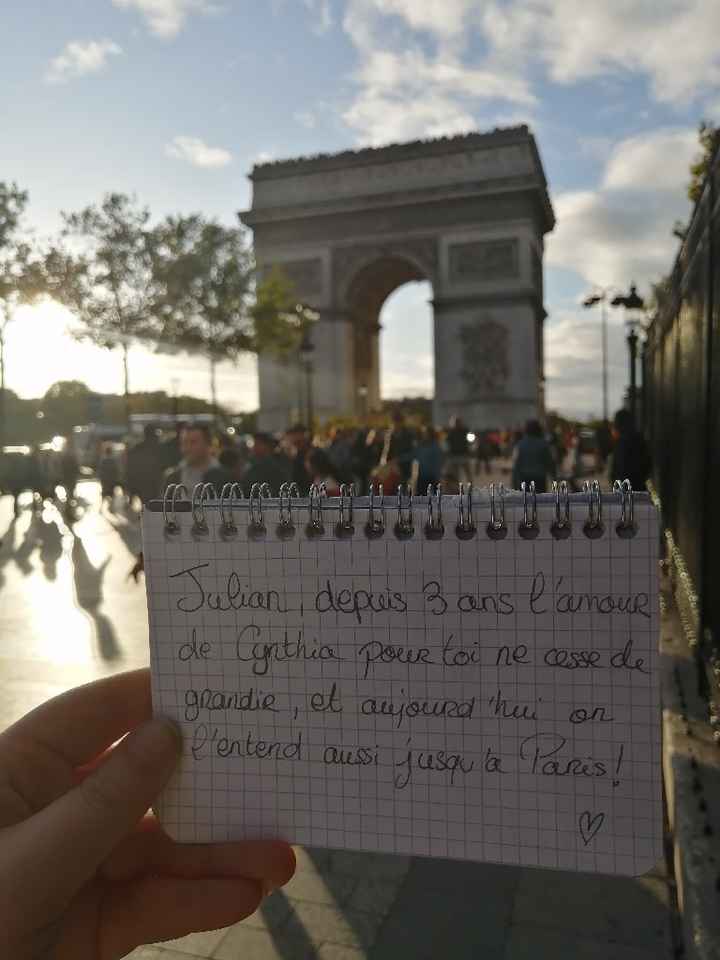 Julian, depuis 3 ans l'amour
de Cynthia pour toi ne cesse de
grandir, et aujourd'hui on
l'entend aussi jusqu'à Paris!
♡